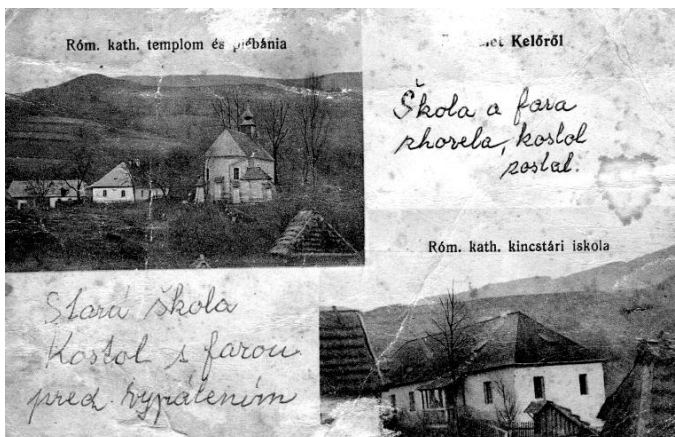 Róm. kath. templom és plébánia
Kelőről
Škola a fara
zhorela, kostol
zostal.
Róm. kath. kincstári iskola
Stará škola
Kostol s farou
pred. vypálením